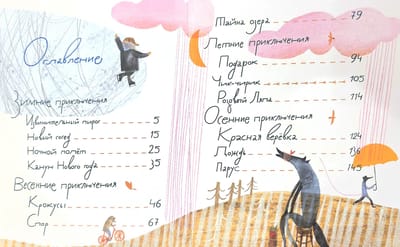 Оглавление
Зимние приключения
Удивительный пирог 5
Новый сосед 15
Ночной полёт 25
Канун Нового года 35
Весенние приключения
Крокусы 46
Спор 67
Тайна озера 79
Летние приключения
Подарок 94
Чик-чирик 105
Розовый Ляпа 114
Осенние приключения
Красная верёвка 124
Дождь 136
Парус 145